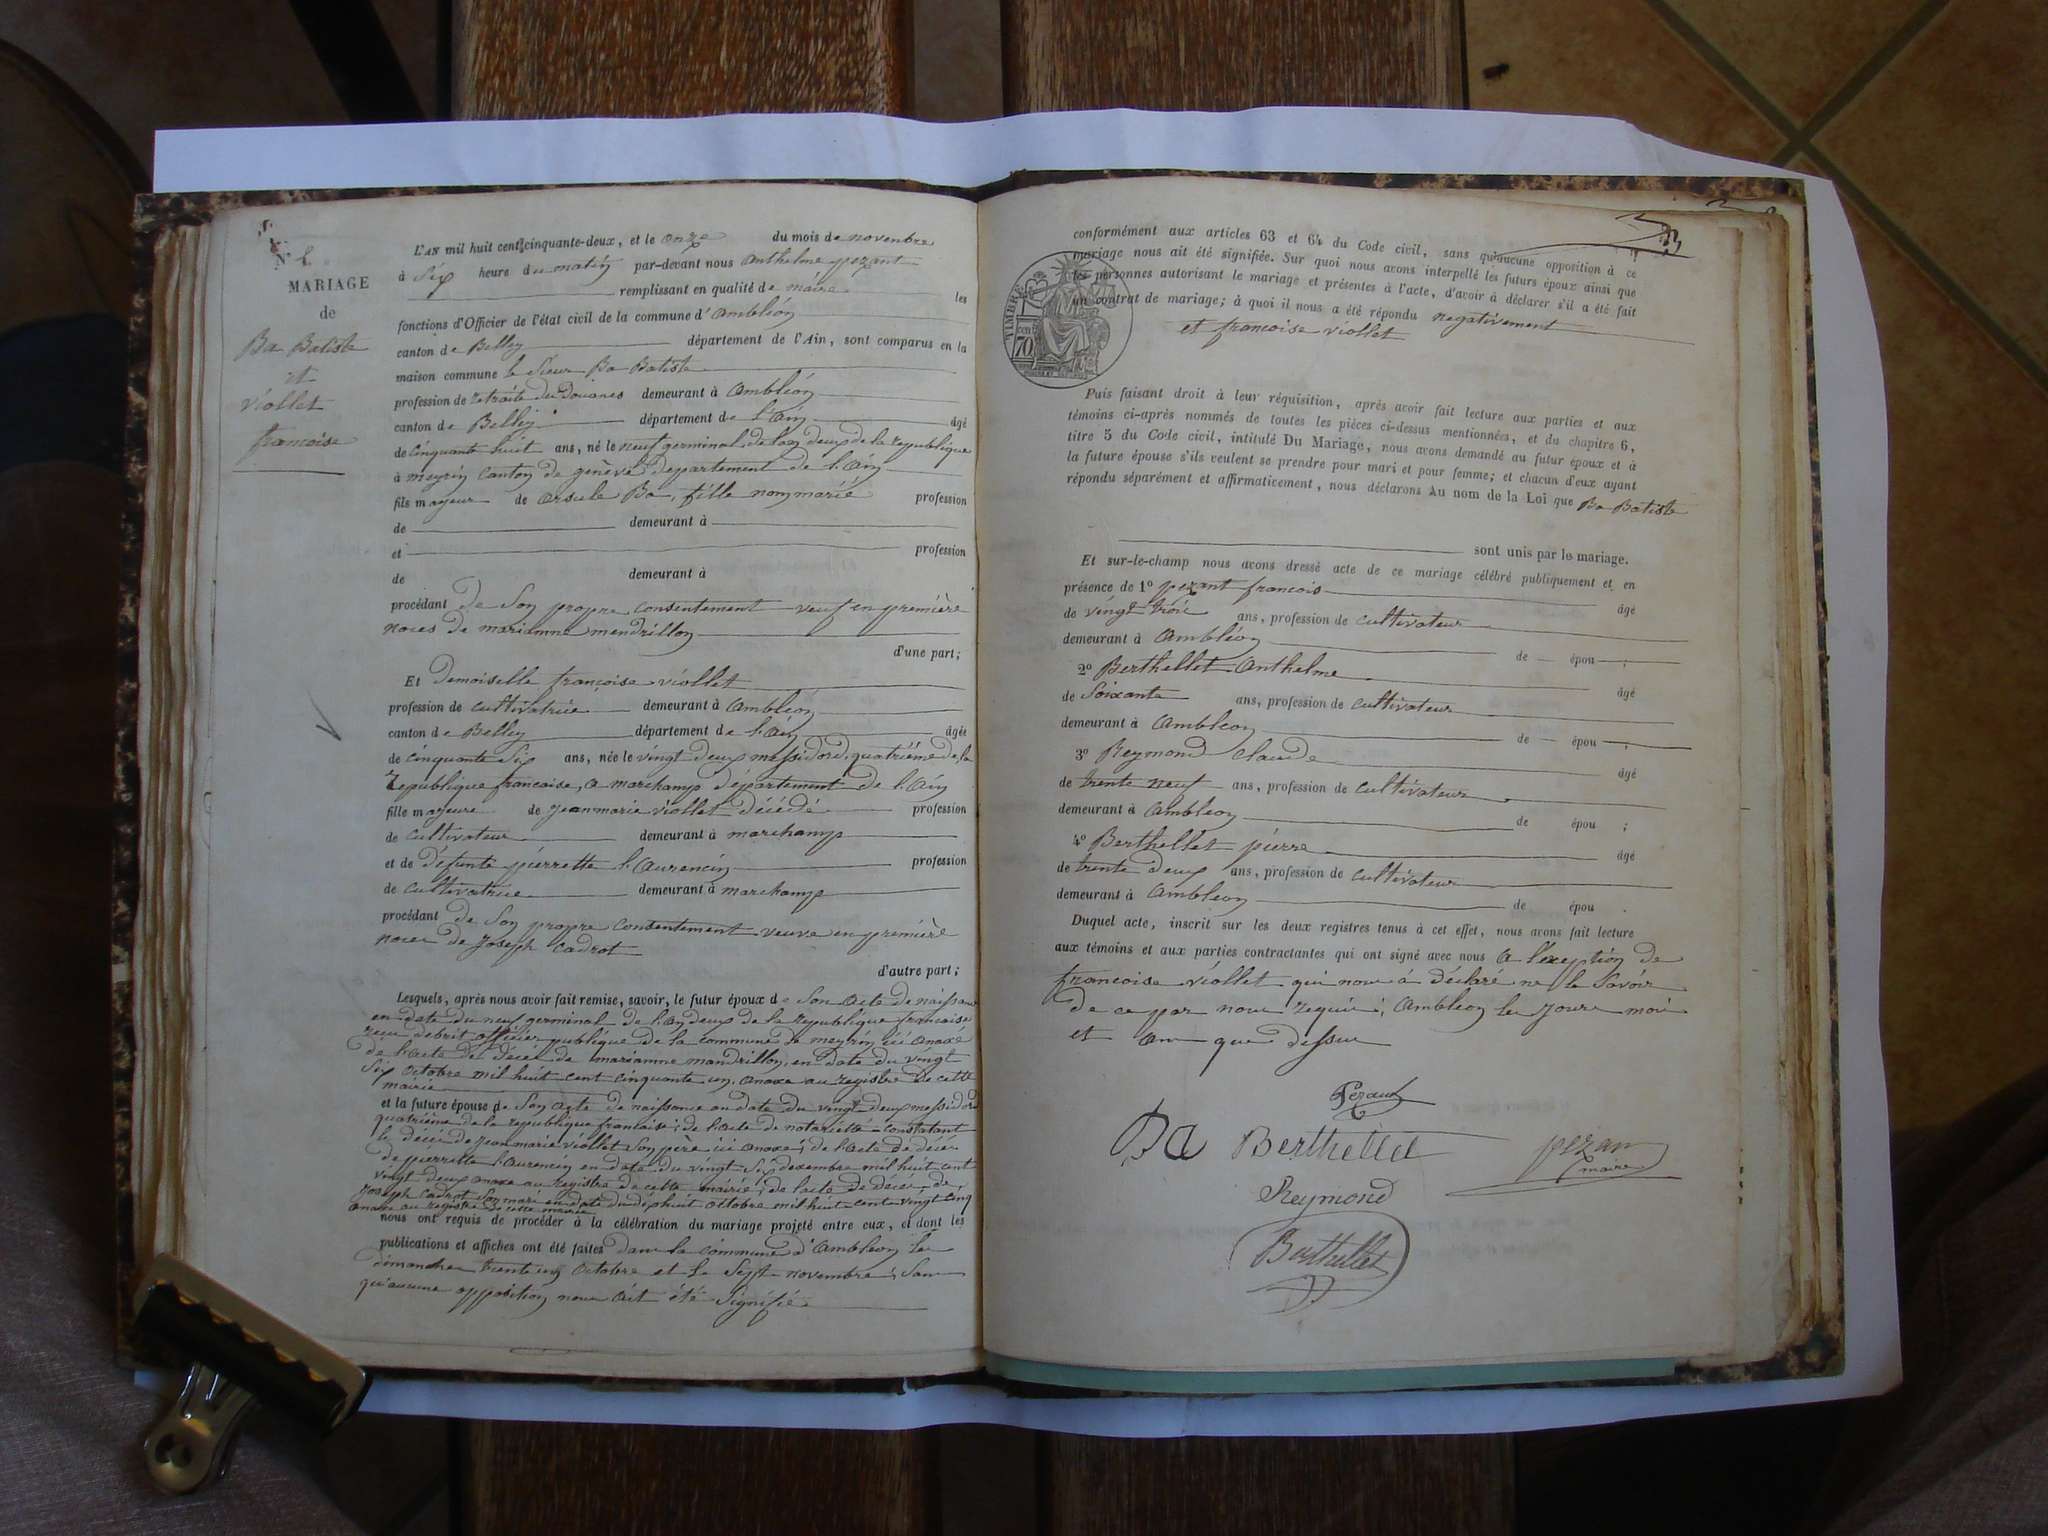 N.º 8
MARIAGE
de
Ba Batiste
et
viollet
francoise
L'AN mil huit cent cinquante-deux, et le onze du mois de novembre
à Six heure du matin par-devant nous anthelme pezant
remplissant en qualité de maire les
fonctions d'Officier de l'état civil de la commune d'Ambléon
canton de Belley département de l'Ain, sont comparus en la
maison commune le Sieur Ba Batiste
profession de retraité du Douanes demeurant à Ambléon
canton de Belley département de l'Ain âgé
de cinquante huit ans, né le neuf germinal de lan deux de la republique
à meyrin canton de genève département de l'Ain
fils majeur de Orsule Ba, fille nommarié profession
de demeurant à
et profession
de demeurant à
procédant de Son propre consentement veuf en première
noces de marianne mendrillon
d'une part;
Et Demoiselle françoise viollet
profession de cultivatrice demeurant à Ambléon
canton de Belley département de l'Ain âgée
de cinquante Six ans, née le vingt deux messidord quatriéme de la
Republique francaise, a marchamp département de l'Ain
fille majeure de jeanmarie viollet décédé profession
de cultivateur demeurant à marchamp
et de défunte pierrette l'Aurencin profession
de cultivatrice demeurant à marchamp
procédant de Son propre consentement veuve en première
noces de joseph cadrot
d'autre part;
Lesquels, après nous avoir fait remise, savoir, le futur époux de Son acte de naissance
en date du neuf germinal de l'an deux de la republique francaise
reçu debrit officier publique de la commune de meyrin ici anaxé
de l'acte de décès de marianne mandrillon, en date du vingt
Six octobre mil huit cent cinquante un, anaxe au registre de cette
mairie
et la future épouse de Son acte de naissance en date du vingt deux messidord
quatriéme de la republique francaise; de l'acte de notariété constatant
le décès de jean marie viollet Son père ici anaxé; de l'acte de décès
de pierrette l'Aurencin en date du vingt Six decembre mil huit cent
vingt deux anaxe au registre de cette mairie; de l'acte de décès de
joseph cadrot Son mari en date du dixhuit octobre mil huit cent vingt cinq
anaxe au registre de cette mairie
nous ont requis de procéder à la célébration du mariage projeté entre eux, et dont les
publications et affiches ont été faites dans la commune d'Ambleon les
dimanches trente un Octobre et le Sept novembre; San
qu'aucune opposition nous ait été Signifié
conformément aux articles 63 et 64 du Code civil, sans qu'aucune opposition à ce
mariage nous ait été signifiée. Sur quoi nous avons interpellé les futurs époux ainsi que
les personnes autorisant le mariage et présentes à l'acte, d'avoir à déclarer s'il a été fait
un contrat de mariage; à quoi il nous a été répondu negativement
TIMBRE
70
et francoise viollet
Puis faisant droit à leur réquisition, après avoir fait lecture aux parties et aux
témoins ci-après nommés de toutes les pièces ci-dessus mentionnées, et du chapitre 6,
titre 5 du Code civil, intitulé Du Mariage, nous avons demandé au futur époux et à
la future épouse s'ils veulent se prendre pour mari et pour femme; et chacun d'eux ayant
répondu séparément et affirmativement, nous déclarons Au nom de la Loi que Ba Batiste
sont unis par le mariage.
Et sur-le-champ nous avons dressé acte de ce mariage célébré publiquement et en
présence de 1º pezant francois âgé
de vingt trois ans, profession de cultivateur
demeurant à Ambléon de épou ;
2º Berthellet Anthelme âgé
de Soixante ans, profession de cultivateur
demeurant à Ambleon de épou ;
3º Reymond claude âgé
de trente neuf ans, profession de cultivateur
demeurant à Ambleon de épou ;
4º Berthellet pierre âgé
de trente deux ans, profession de cultivateur
demeurant à Ambleon de épou .
Duquel acte, inscrit sur les deux registres tenus à cet effet, nous avons fait lecture
aux témoins et aux parties contractantes qui ont signé avec nous a l'exeption de
francoise viollet qui nous à déclaré ne le Savoir
de ce par nous requis; Ambleon les jours mois
et an que dessus
Pezant
Ba Berthellet pezan
maire
Reymond
Berthellet